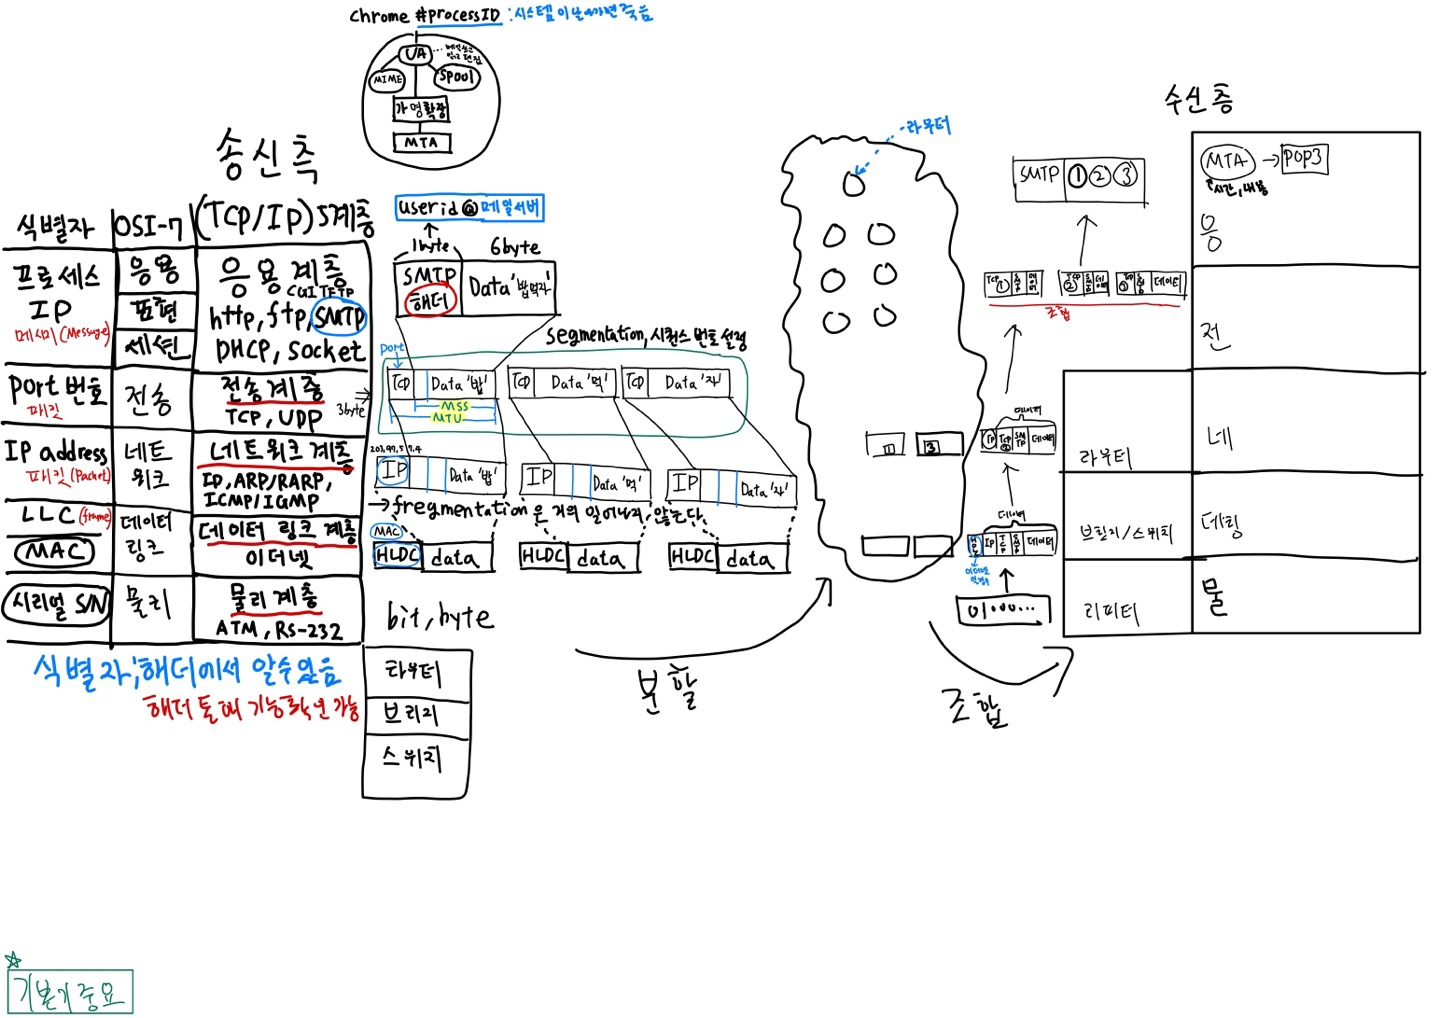 Chrome #processID : 시스템이 날아가면 죽음
UA
MIME
SPOOl
가명확장
MTA
송신측
식별자
OSI-7
(TCP/IP) 5계층
프로세스
IP
메세지(Message)
응용
표현
세션
응용계층
CGI TFTP
http, ftp, SMTP
DHCP, Socket
port 번호
패킷
전송
전송계층
TCP, UDP
IP address
패킷(Packet)
네트
워크
네트워크 계층
IP, ARP/RARP,
ICMP/IGMP
LLC (frame)
MAC
데이터
링크
데이터 링크 계층
이더넷
시리얼 S/N
물리
물리계층
ATM, RS-232
식별자; 해더에서 알수있음
해더 볼때 기능확인 가능
userid@메일서버
1byte
6byte
SMTP
해더
Data '밥먹자'
segmentation, 시퀀스 번호 설정
port
TCP
Data '밥'
TCP
Data '먹'
TCP
Data '자'
3byte
MSS
MTU
IP
Data '밥'
IP
Data '먹'
IP
Data '자'
→ fregmentation은 거의 일어나지 않는단
MAC
HLDC
data
HLDC
data
HLDC
data
bit, byte
라우터
브리지
스위치
분할
라우터
1
3
조합
수신층
SMTP
① ② ③
MTA → POP3
↑시간, 내용
응
TCP
①
TCP
②
데이터
조합
전
데이터
IP
TCP
SMTP
데이터
라우터
네
데이터
IP
TCP
데이터
브릿지/스위치
데링
01000...
리피터
물
기본기 중요